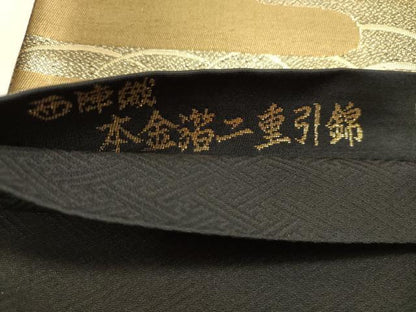 西陣織
本金箔二重引錦